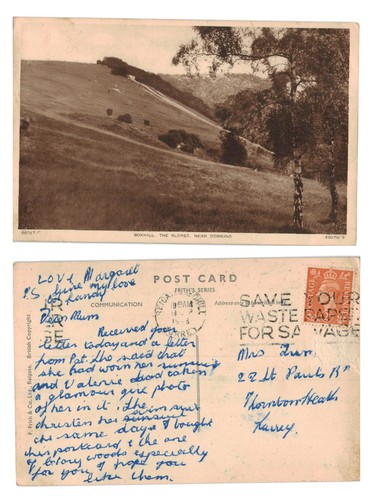 BOXHILL, THE SLOPES, NEAR DORKING
LOVE Margaret
PS Give my love
to Randy
POST CARD
FRITH'S SERIES
COMMUNICATION
SAVE YOUR
WASTE PAPER
FOR SALVAGE
F. Frith & Co., Ltd., Reigate
Dear Mum
Received your
letter today and a letter
from Pat. She said that
she had won her
and Valerie
a glamour give photo
of her in it. The
christen her
the same day. I bought
this postcard & the one
of Colony woods especially
for you, I hope you
like them.
Mrs
22 St Pauls Rd
Thornton Heath
Surrey